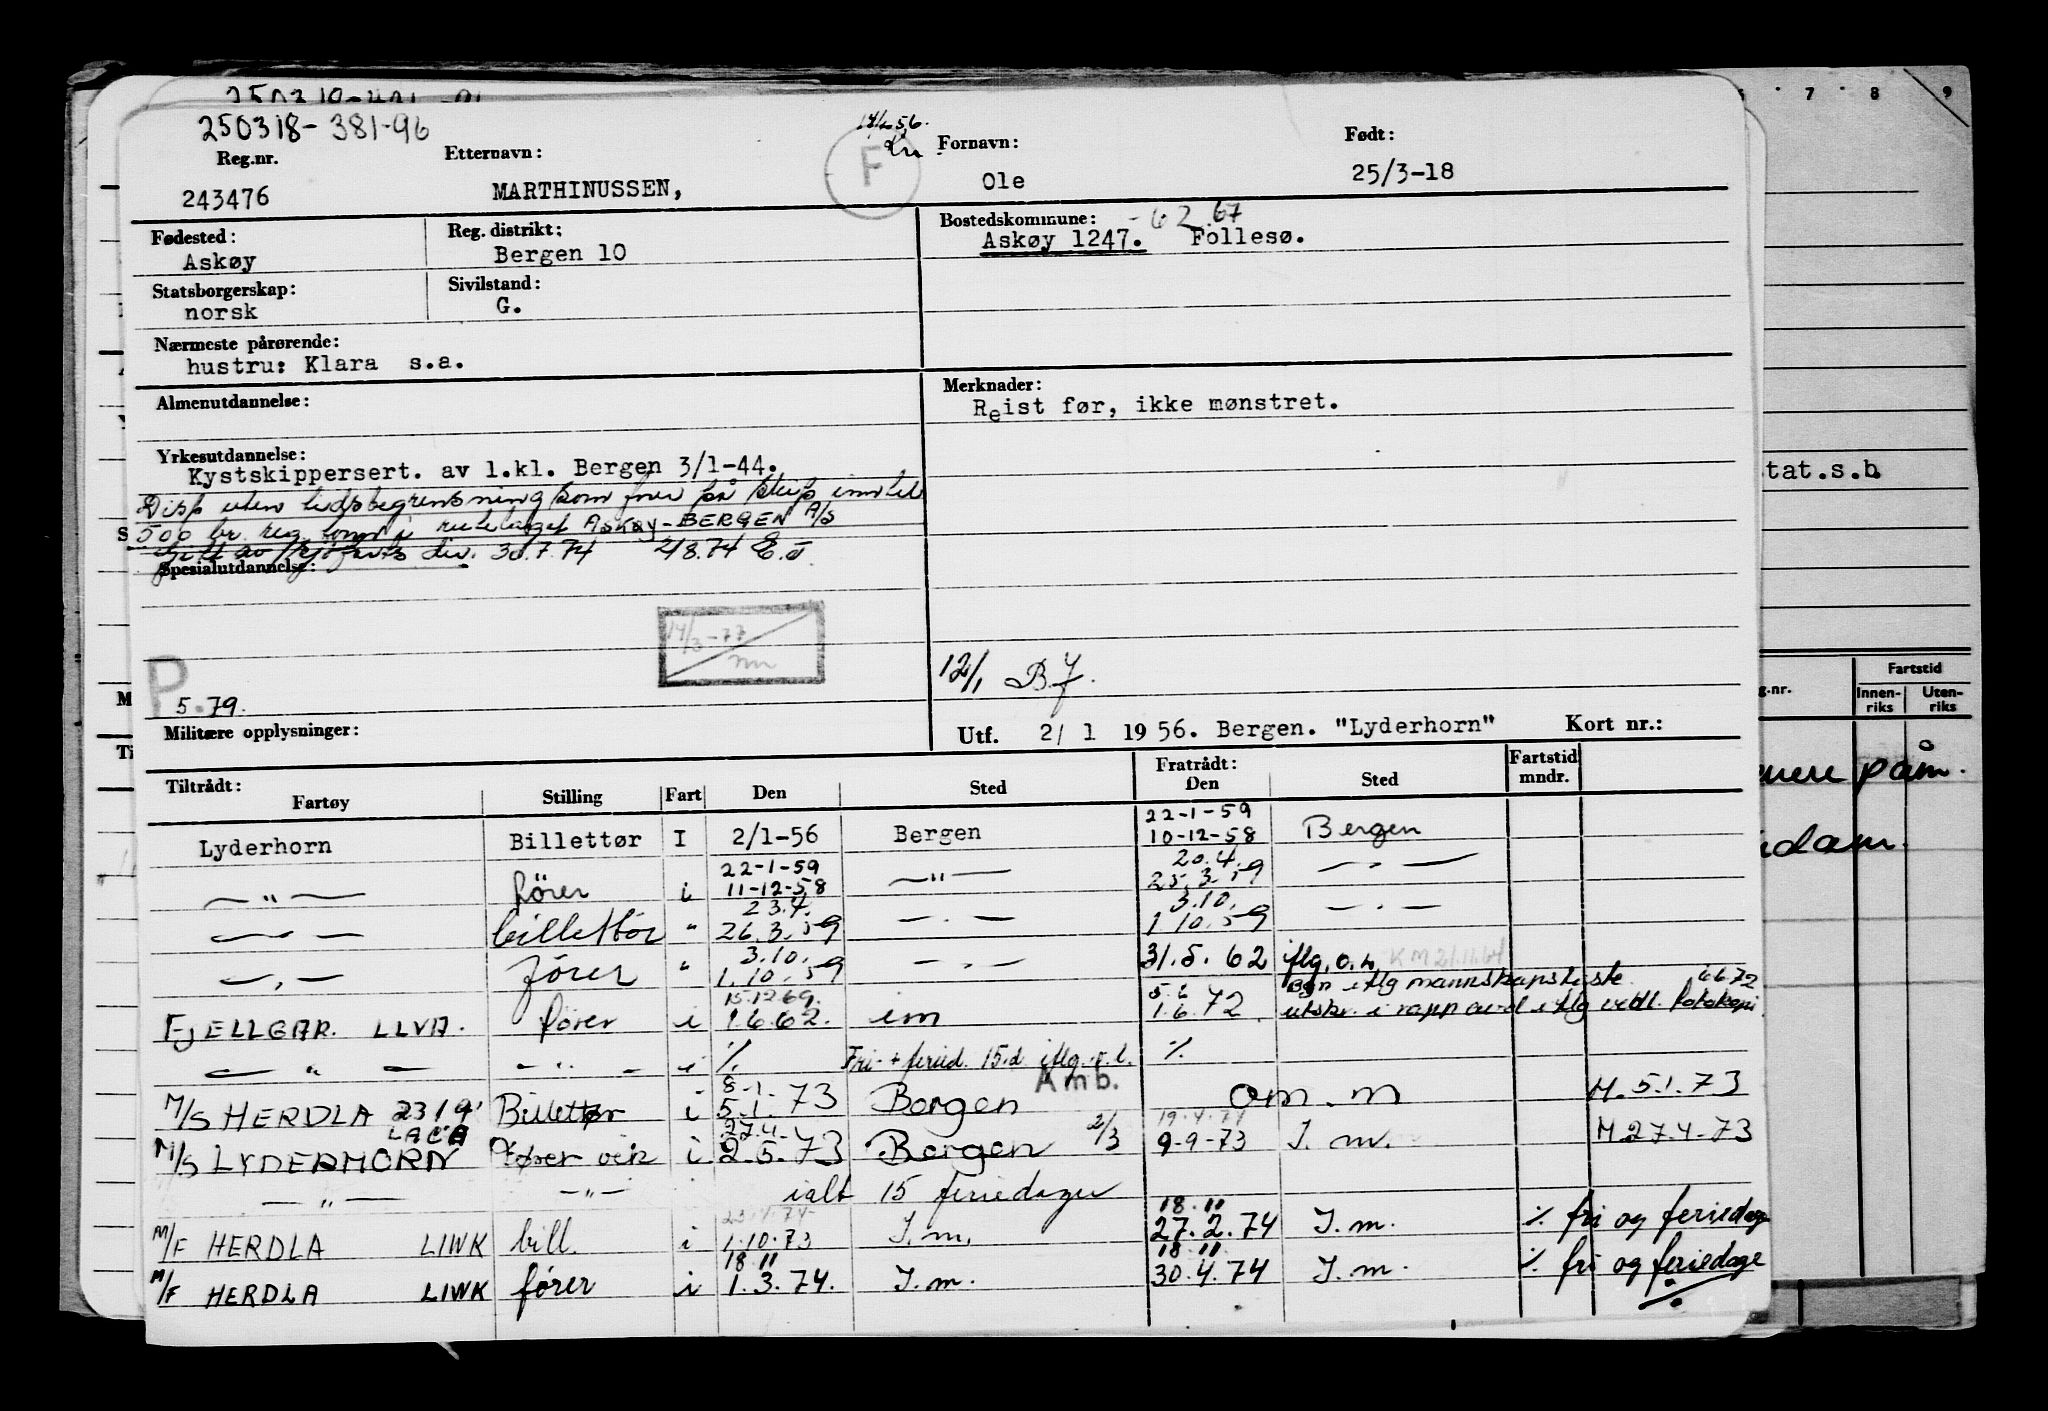 250318-381-96
Reg.nr.
Etternavn:
F
Fornavn:
Født:
243476
MARTHINUSSEN,
Ole
25/3-18
Fødested:
Askøy
Reg. distrikt:
Bergen 10
Bostedskommune: -62.67
Askøy 1247. Follesø.
Statsborgerskap:
norsk
Sivilstand:
G.
Nærmeste pårørende:
hustru: Klara s.a.
Almenutdannelse:
Merknader:
Reist før, ikke mønstret.
Yrkesutdannelse:
Kystskippersert. av 1.kl. Bergen 3/1-44.
Disp uten tidsbegrensning som fører på skip inntil
500 br. reg. tonn i rutelaget ASKØY-BERGEN A/S
gitt av Sjøfarts dir. 30.7.74 2/8.74 E.J
Spesialutdannelse:
14/3-77
P
5.79.
12/1 B.J.
Militære opplysninger:
Utf. 2/ 1 19 56. Bergen. "Lyderhorn" Kort nr.:
Tiltrådt:
Fartøy Stilling Fart Den Sted
Fratrådt:
Den Sted
Fartstid
mndr.
22-1-59
Lyderhorn Billettør I 2/1-56 Bergen 10-12-58 Bergen
22-1-59 20.4.
— " — fører i 11-12-58 — " — 25.3.59 — " —
23.4. 3.10.
— " — billettør " 26.3.59 — " — 1 10.59 — " —
3.10.
— " — fører " 1.10.59 — " — 31.5.62 iflg. o.l. KM 21.11.64
15.12.69. 5.6 Bgn iflg mannskapsliste 6672
FJELLGAR. LLVA. fører i 1.6.62. im 1.6.72 utskr. i rapp avd iflg vedl. fotokopi
— " — — " — i % Fri- + feried. 15.d iflg. o.l. %
8.1. Amb.
M/S HERDLA 2319 Billettør i 5.1.73 Bergen om. m M.5.1.73
LACA 27.4. 2/3 19.4.74
M/S LYDERHORN Fører vik i 2.5.73 Bergen 9-9-73 I.m. M.27.4-73
— " — — " — ialt 15 feriedager
23.4.74 18.11
M/F HERDLA LIWK bill. i 1.10.73 I.m. 27.2.74 I.m. % fri og feriedage
18.11 18.11
M/F HERDLA LIWK fører i 1.3.74. I.m. 30.4.74 I.m. % fri og feriedage
7 8 9
tat.s.b
g.nr.
Fartstid
Innen-
riks
Uten-
riks